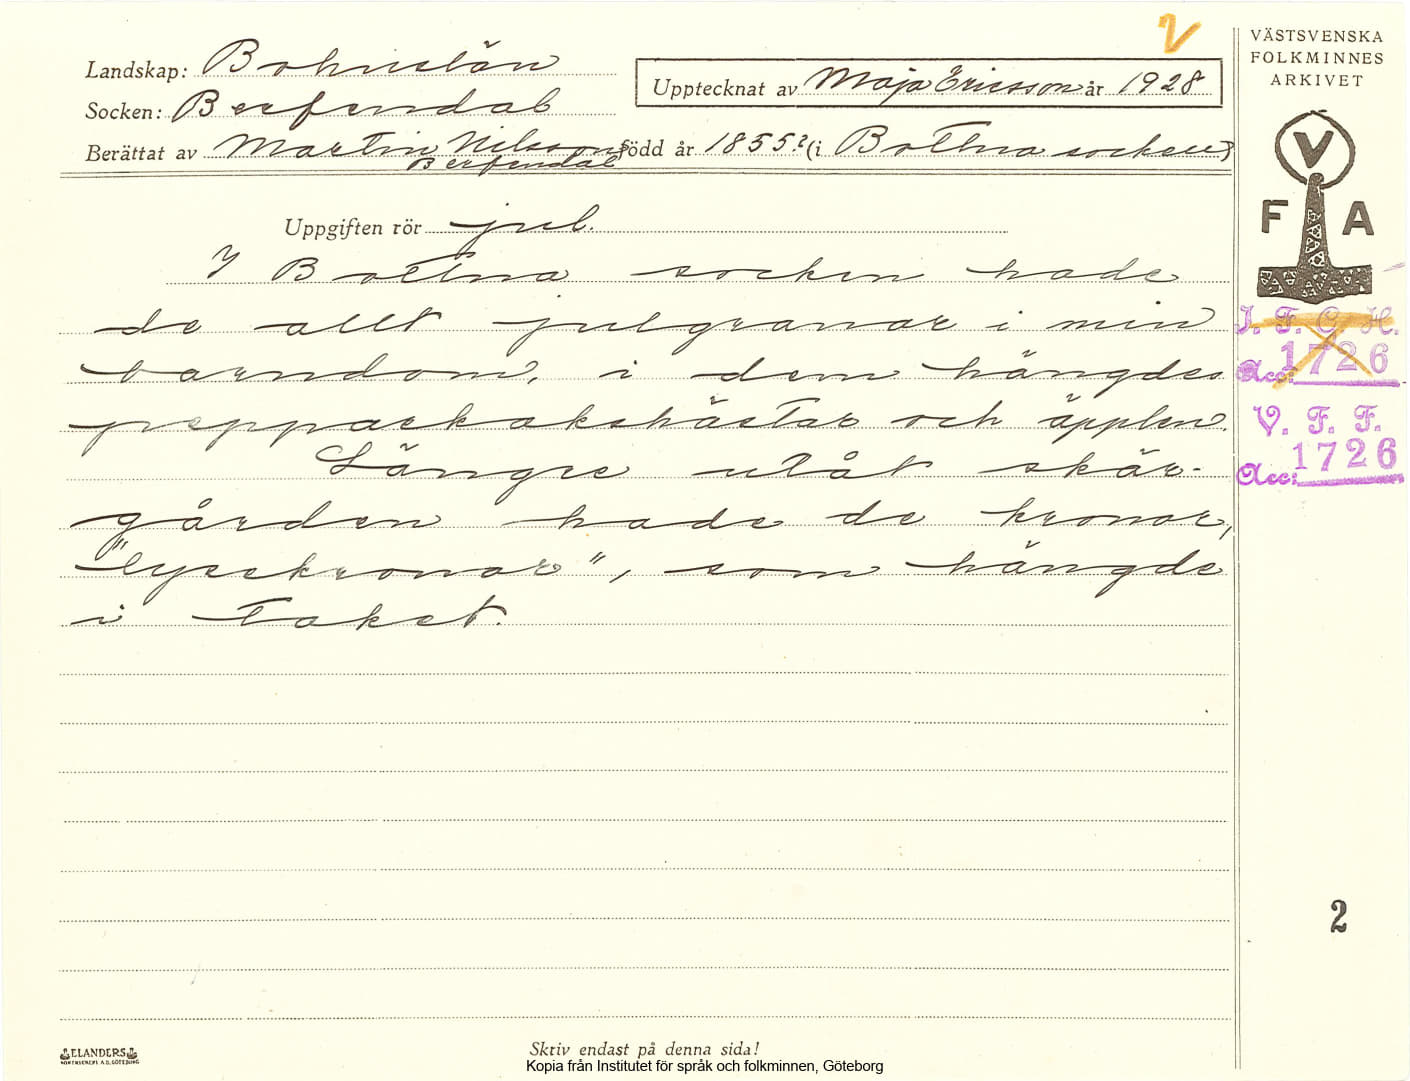 V
Landskap: Bohuslän
Socken: Berfendal
Upptecknat av Maja Ericsson år 1928
Berättat av Martin Nilsson, Född år 1855? (i Bottna socken)
Berfendal
Uppgiften rör jul.
I Bottna socken hade
de allt julgranar i min
barndom, i dem hängdes
peppackakshästar och äpplen.
Längre utåt skär-
gården hade de kronor,
"lysekronor", som hängde
i taket.
VÄSTSVENSKA
FOLKMINNES
ARKIVET
V
F A
I. F. G. H.
Acc: 1726
V. F. F.
Acc: 1726
2
ELANDERS
Skriv endast på denna sida!
Kopia från Institutet för språk och folkminnen, Göteborg